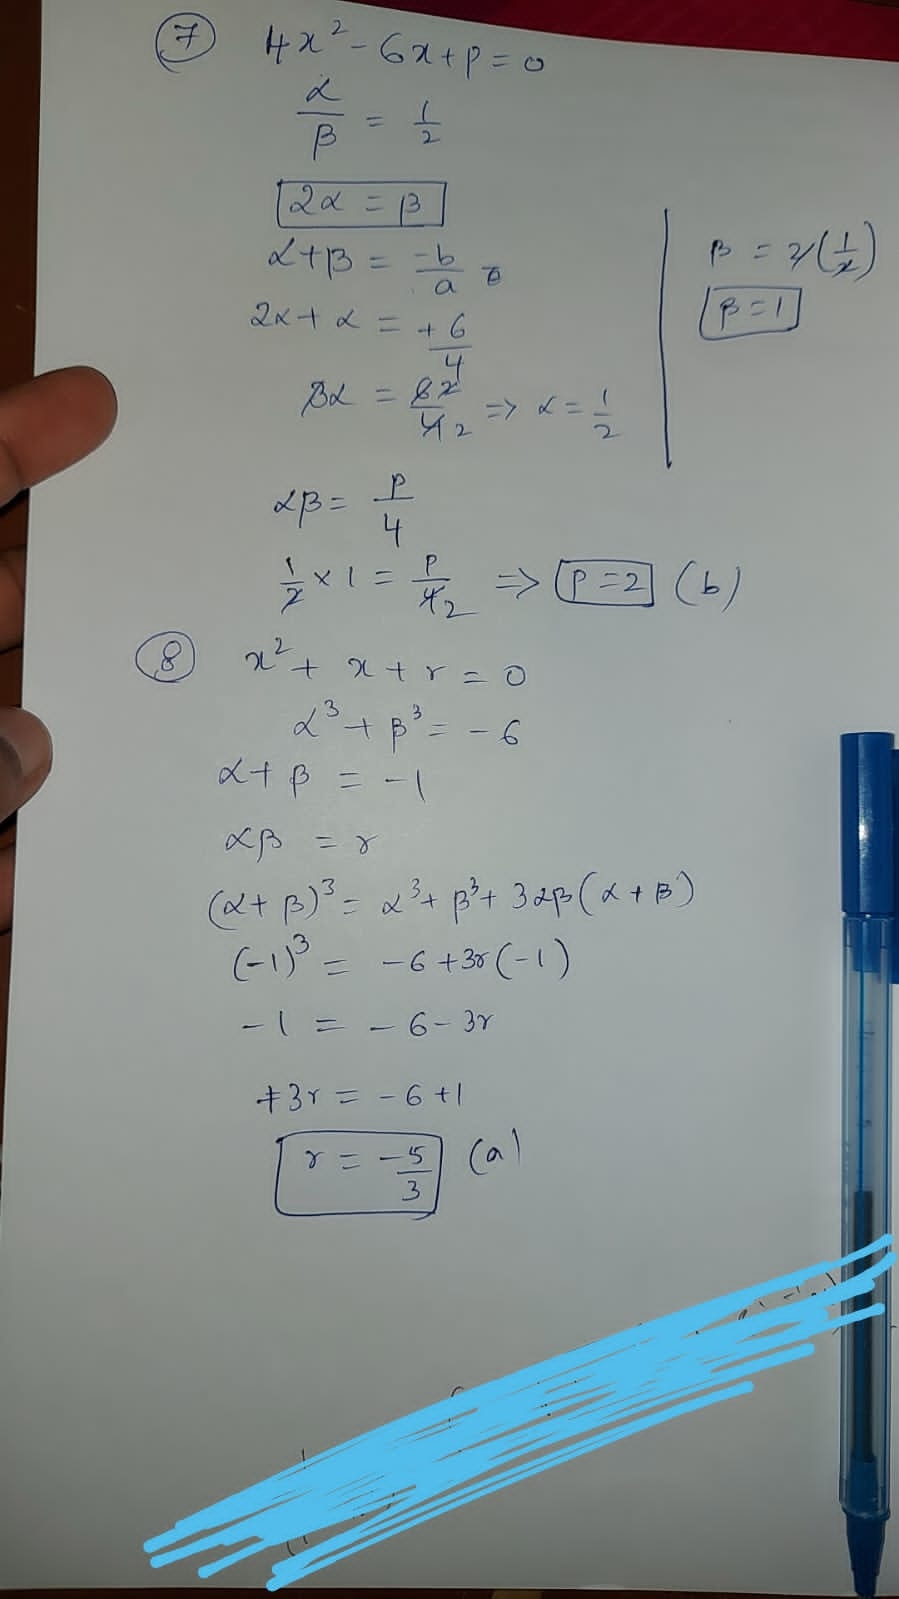 7 4x² - 6x + p = 0
α/β = 1/2
2α = β
α + β = -b/a
2α + α = +6/4
3α = 6/4 2 => α = 1/2
β = 2(1/2)
β = 1
αβ = p/4
1/2 × 1 = p/4 2 => p = 2 (b)
8 x² + x + r = 0
α³ + β³ = -6
α + β = -1
αβ = r
(α + β)³ = α³ + β³ + 3αβ(α + β)
(-1)³ = -6 + 3r(-1)
-1 = -6 - 3r
+3r = -6 + 1
r = -5/3 (a)